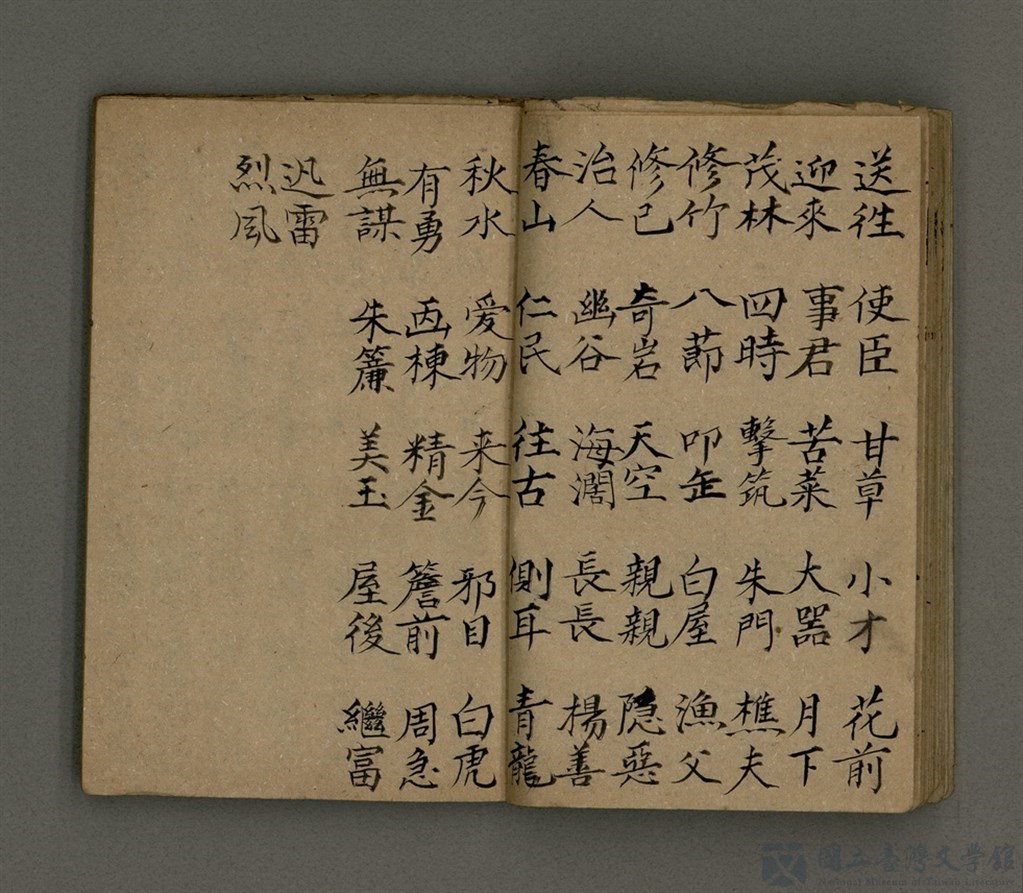 送徃 使臣 甘草 小才 花前
迎來 事君 苦菜 大器 月下
茂林 四時 擊筑 朱門 樵夫
修竹 八莭 叩缶 白屋 漁父
修己 奇岩 天空 親親 隐惡
治人 幽谷 海濶 長長 楊善
春山 仁民 往古 側耳 青龍
秋水 爱物 来今 邪目 白虎
有勇 画棟 精金 簷前 周急
無謀 朱簾 美玉 屋後 繼富
迅雷
烈風
國立臺灣文學館
National Museum of Taiwan Literature